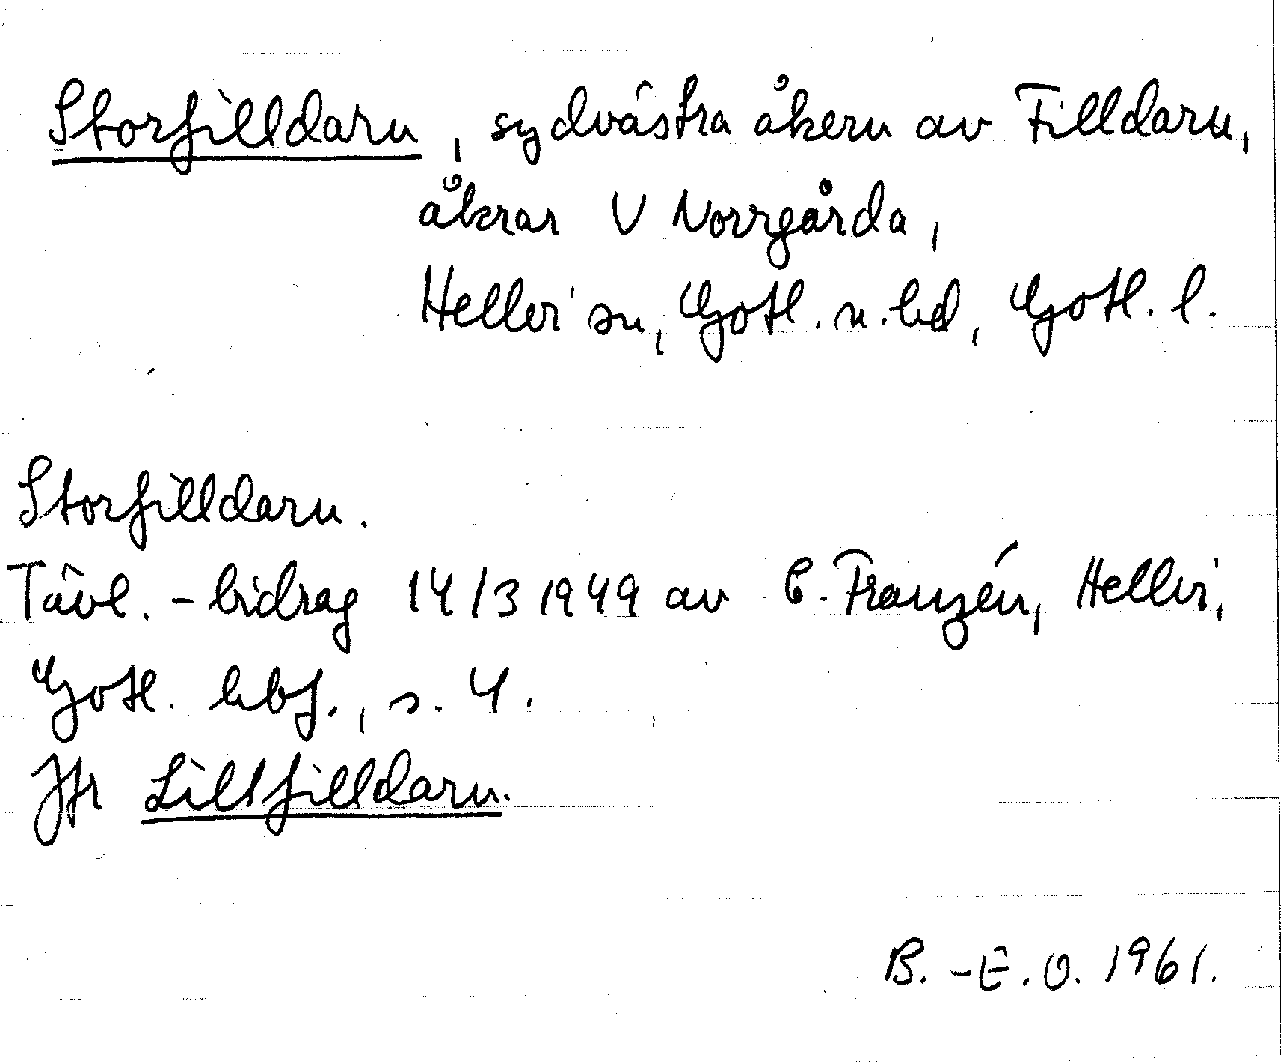 Storfilldarn, sydvästra åkern av Filldarn,
åkrar V Norrgårda,
Hellvi sn, Gotl. n. hd, Gotl. l.
Storfilldarn.
Tävl. - bidrag 14/3 1949 av C. Franzén, Hellvi,
Gotl. hbf., s. 4.
Jfr Lillfilldarn.
B. - E. O. 1961.